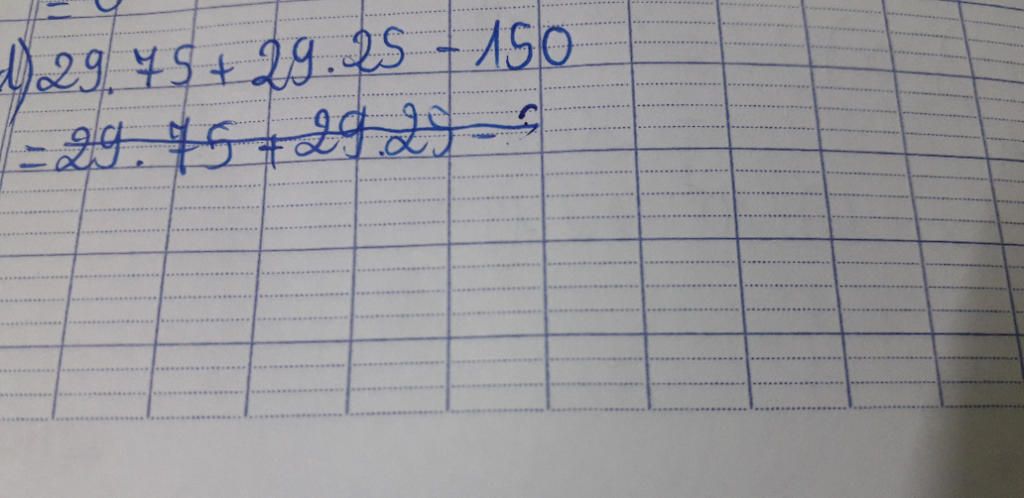 d) 29.75 + 29.25 - 150
= 29.75 + 29.29 -